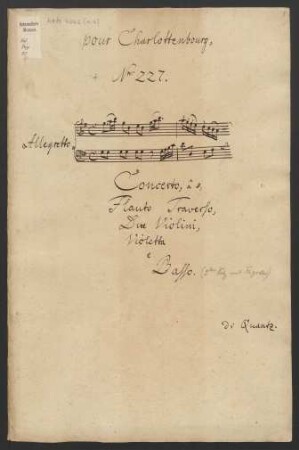 pour Charlottenbourg,
Nr. 227.
Allegretto
Concerto, à 5,
Flauto Traverso,
Due Violini,
Violetta
e
Basso.
di Quantz.